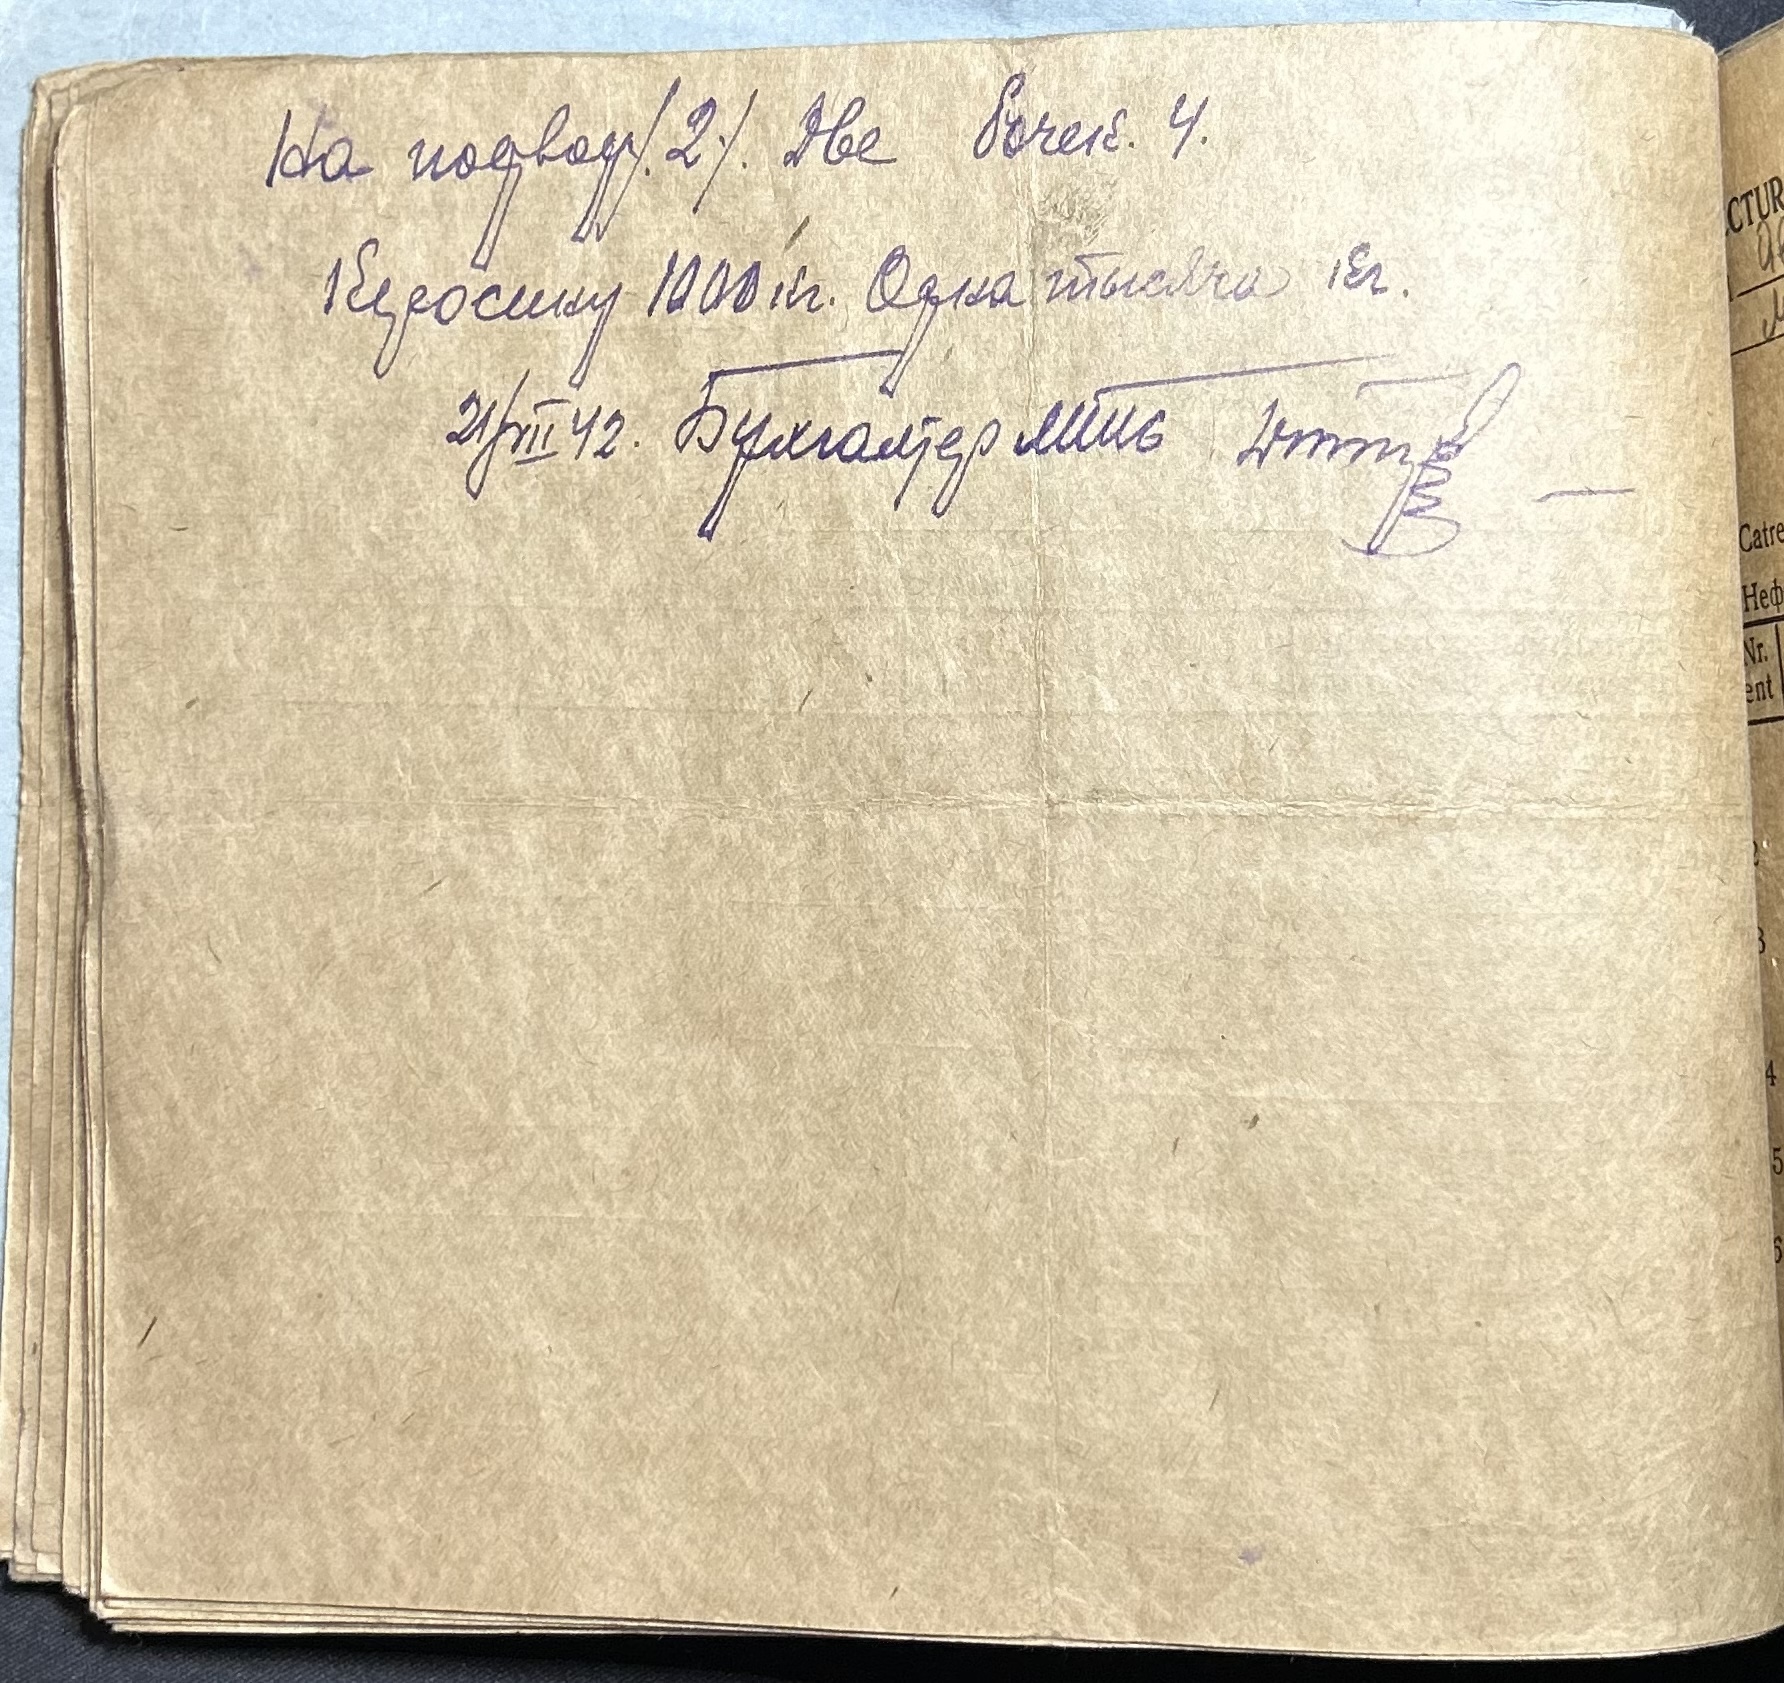 На подвод /.2./. Две бочек. 4.
Керосину 1000 кг. Одна тысяча кг.
21/VIII 42. Бухгалтер
CTUR
Catre
Неф
Nr.
ent
2
3
4
5
6